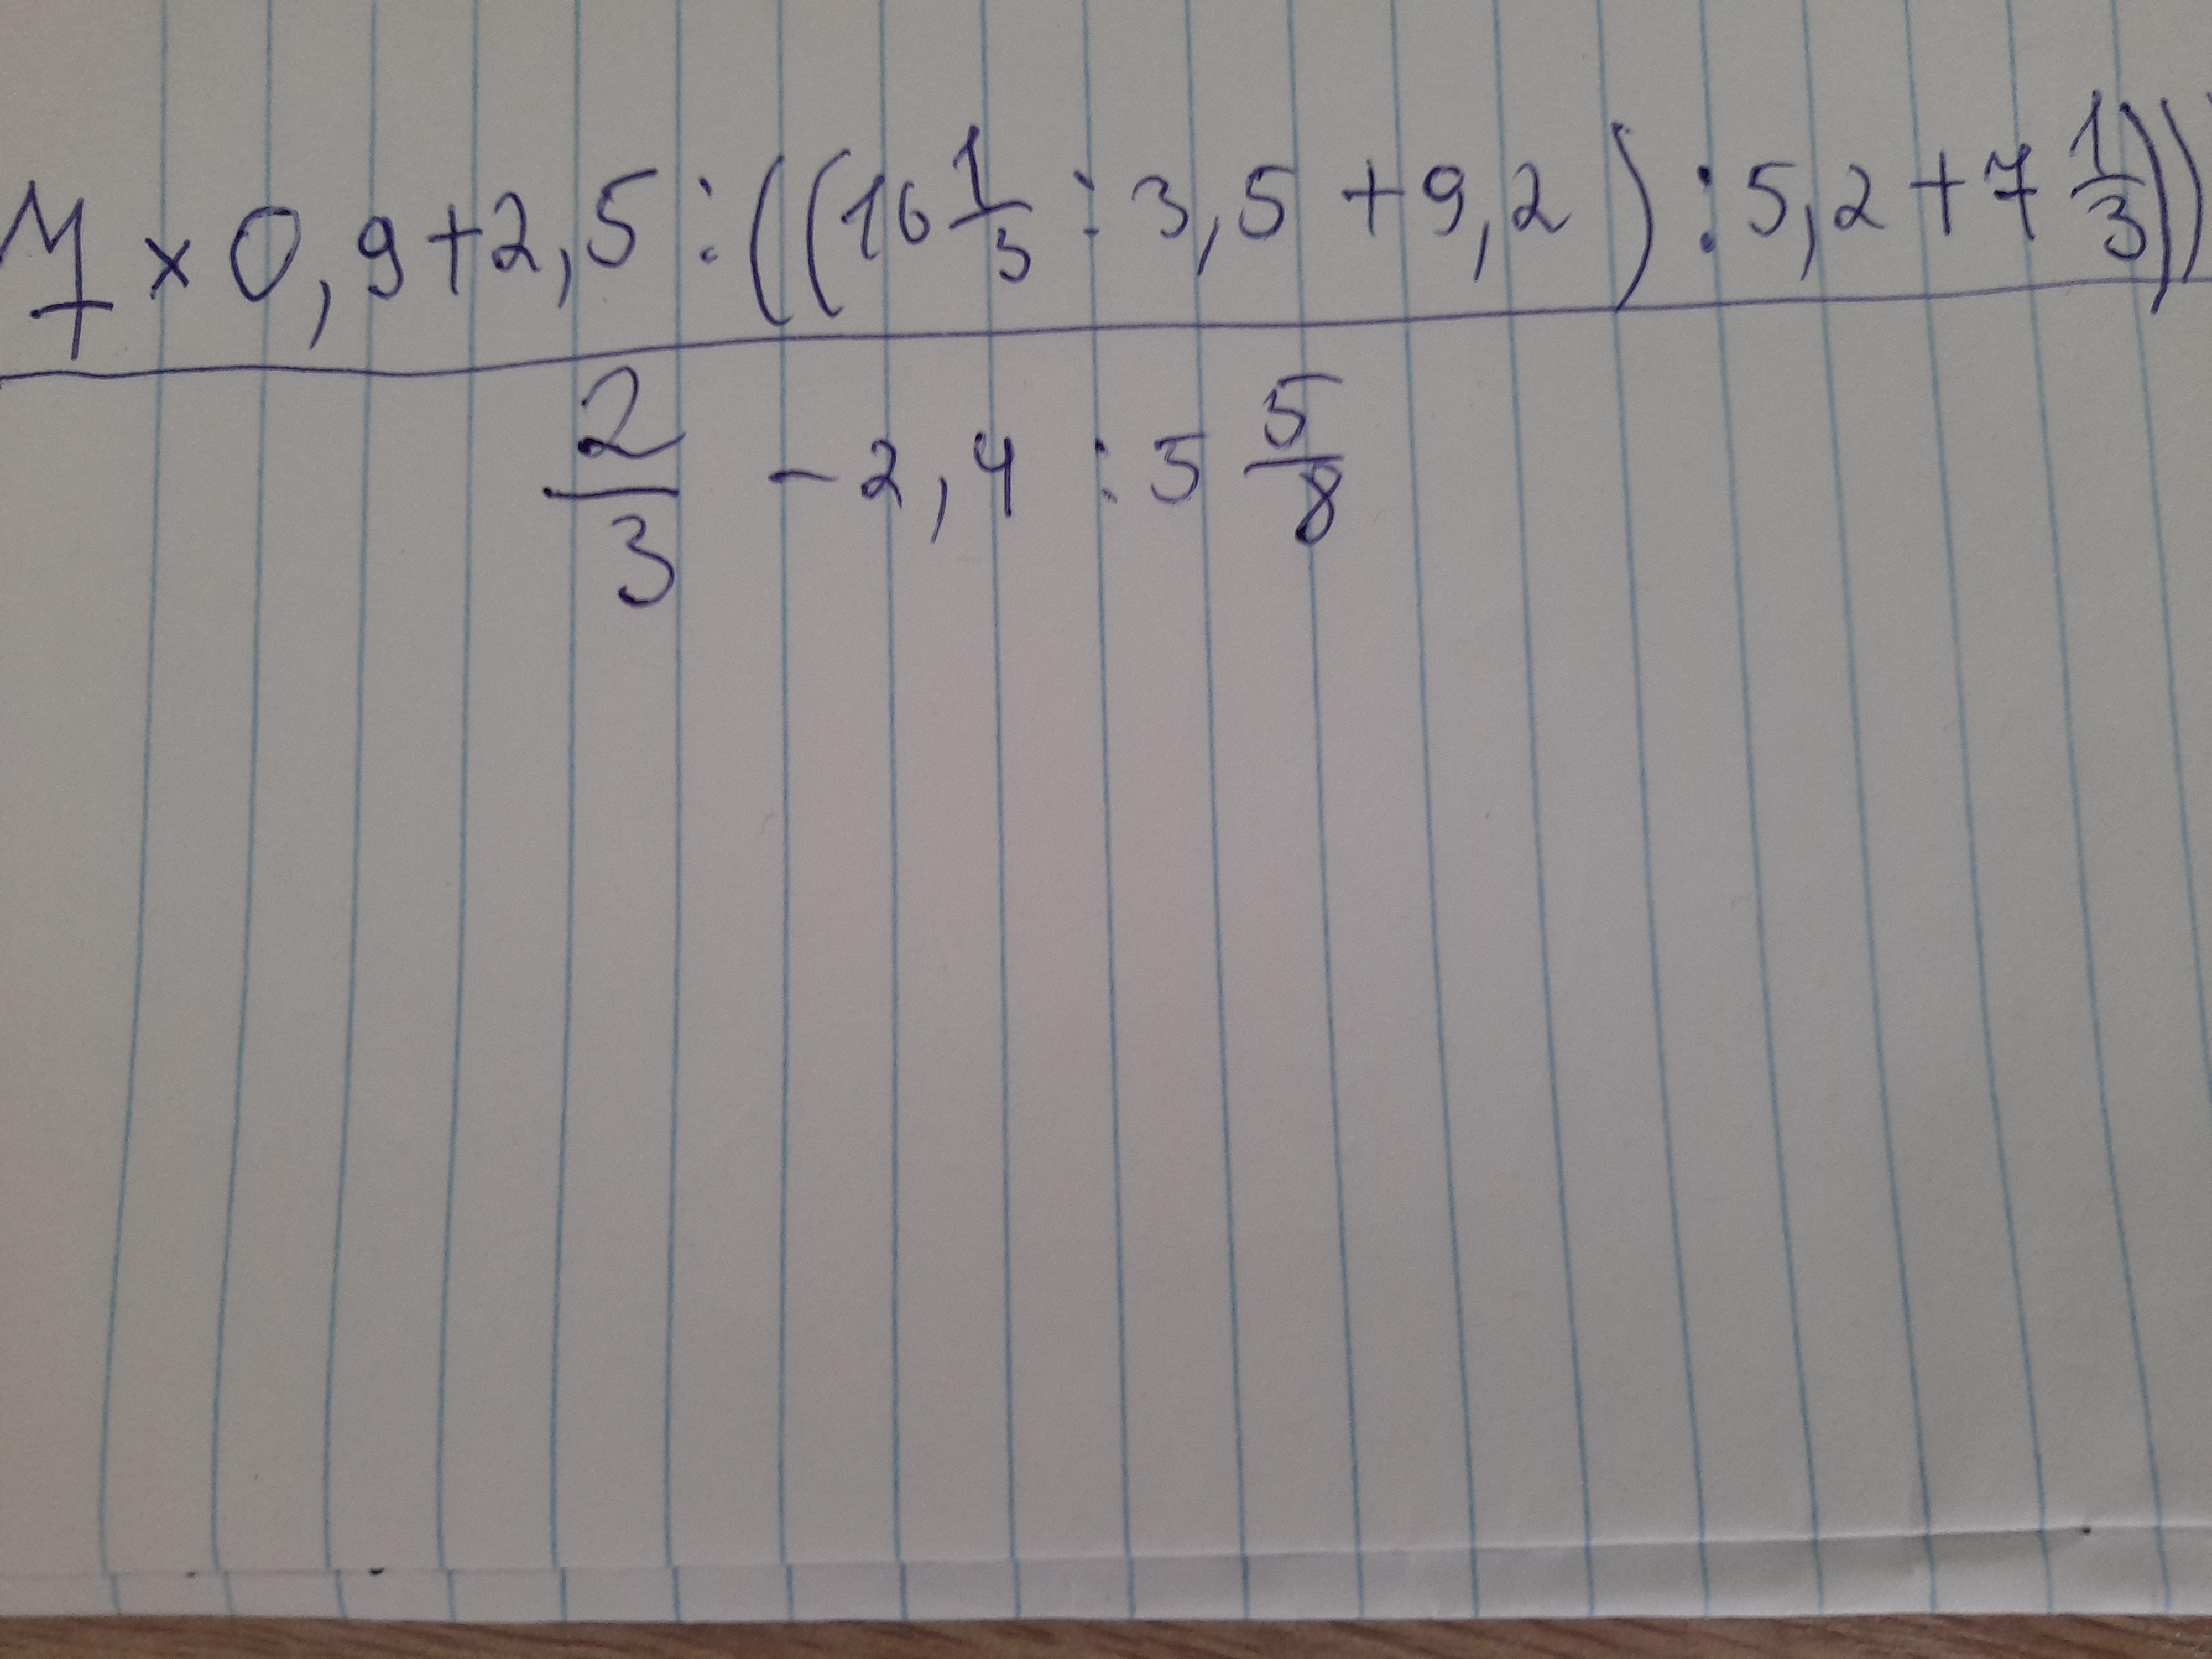 × 0,9+2,5:((16 1/5 : 3,5 + 9,2) : 5,2 + 7 1/3))
2/3 - 2,4 : 5 5/8